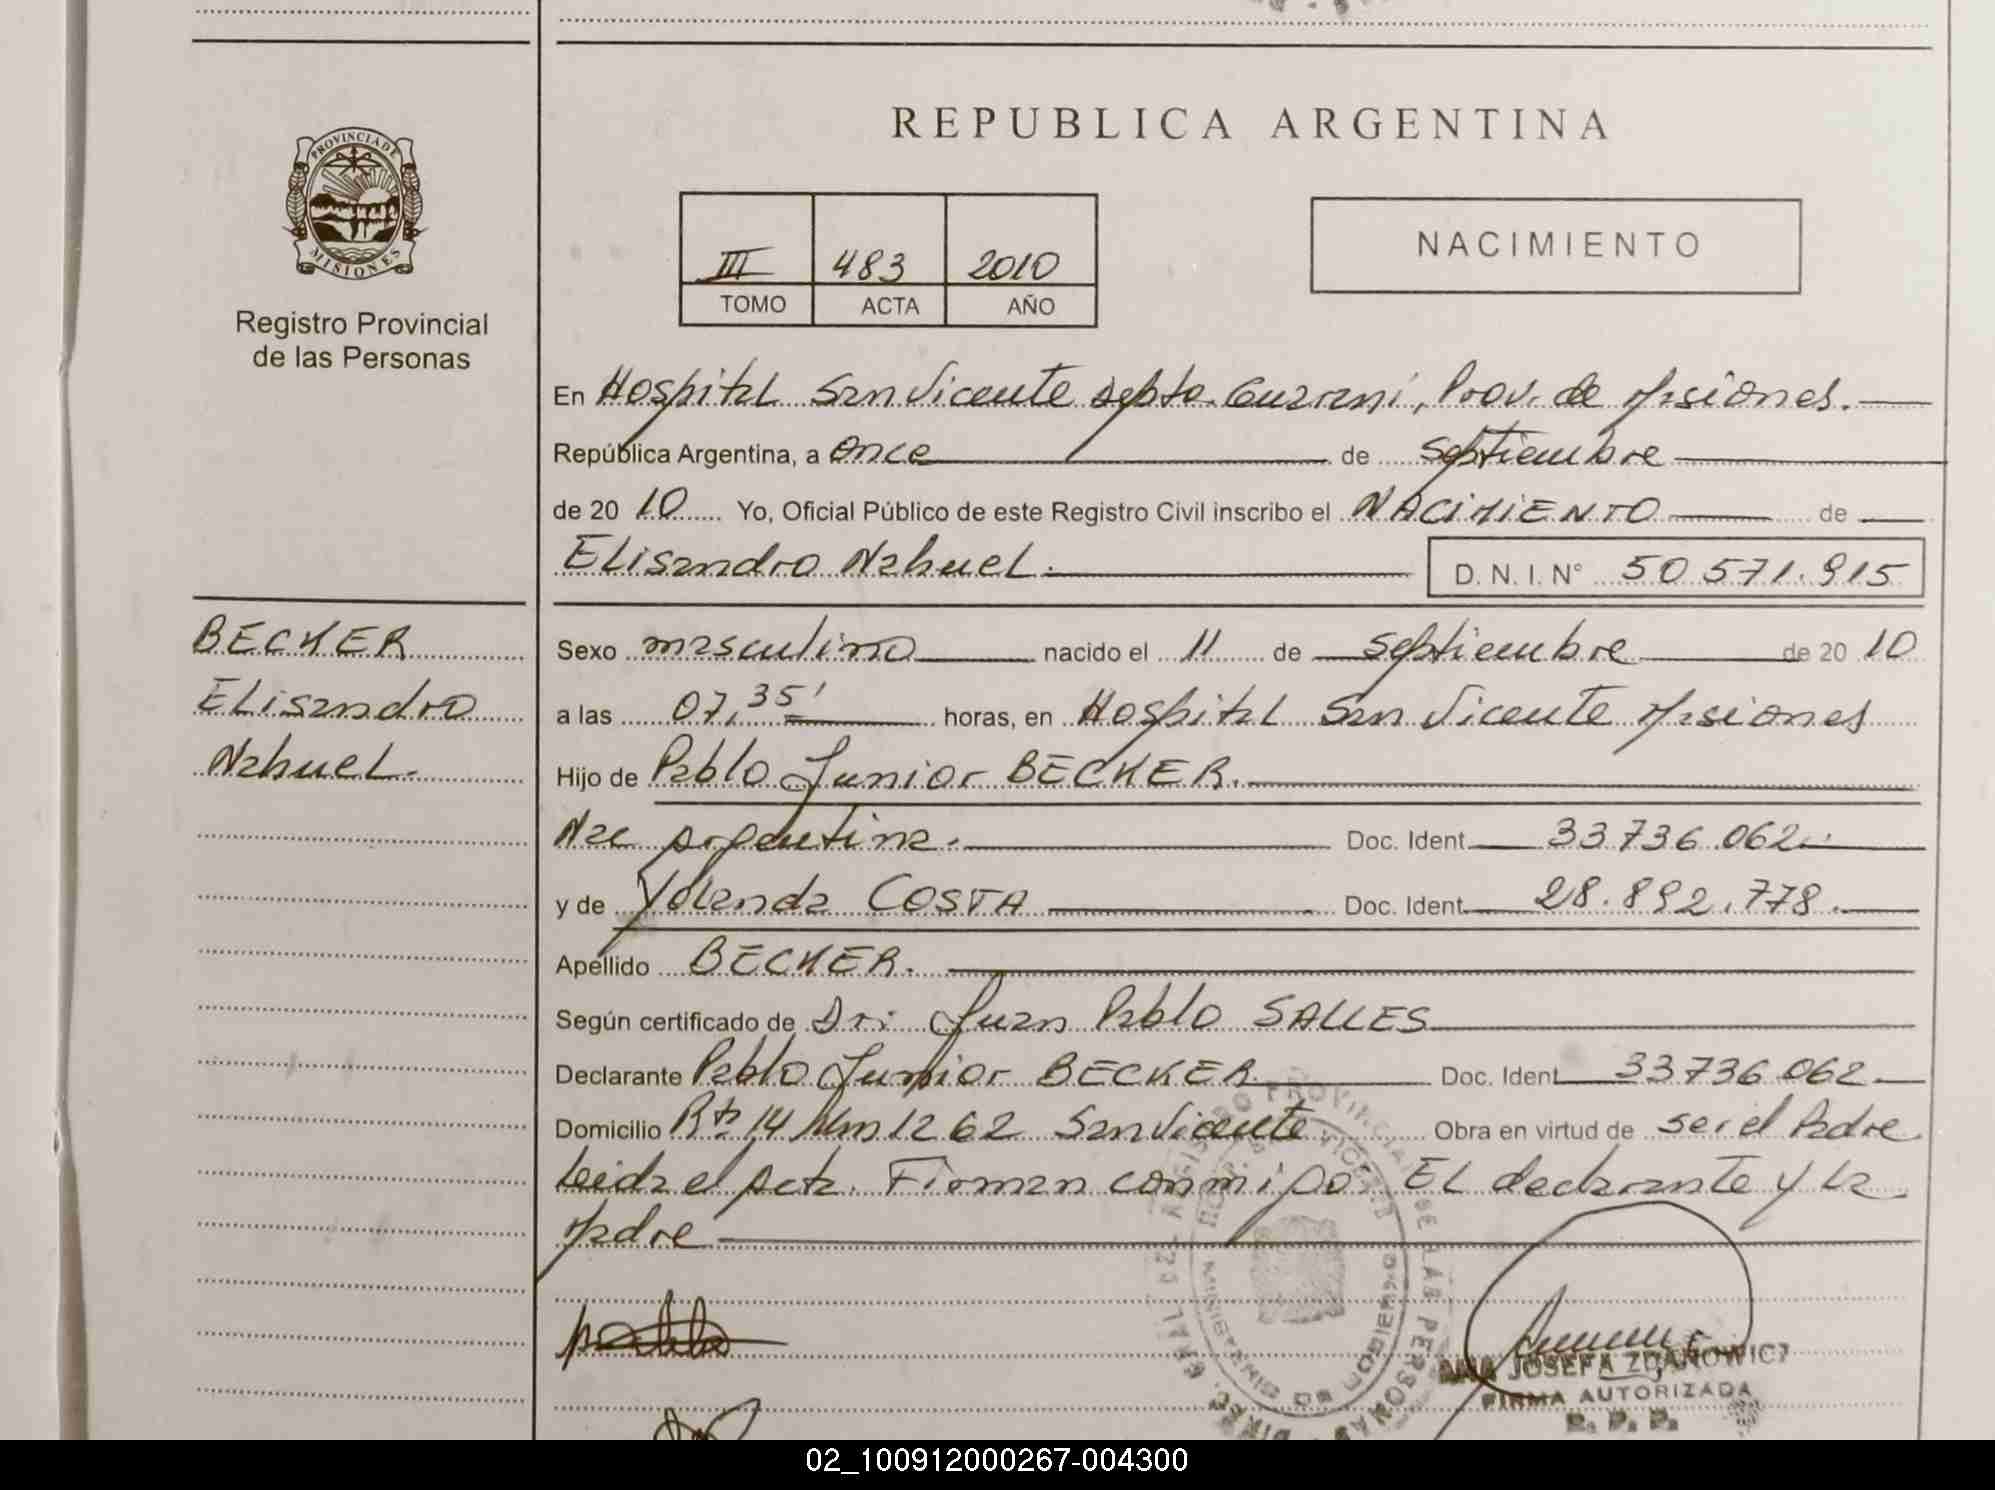 REPUBLICA ARGENTINA
PROVINCIA DE
MISIONES
Registro Provincial
de las Personas
III 483 2010
TOMO ACTA AÑO
NACIMIENTO
En Hospital San Vicente Depto. Guarani, Prov. de Misiones.
República Argentina, a once de Septiembre
de 20 10 Yo, Oficial Público de este Registro Civil inscribo el NACIMIENTO de
Elisandro Nahuel.
D. N. I. N° 50.571.915
BECKER
Elisandro
Nahuel.
Sexo masculino nacido el 11 de Septiembre de 20 10
a las 07,35' horas, en Hospital San Vicente Misiones
Hijo de Pablo Junior BECKER.
Nac Argentina. Doc. Ident. 33.736.062.
y de Yolanda COSTA Doc. Ident. 28.892.778.
Apellido BECKER.
Según certificado de Dr: Juan Pablo SALLES
Declarante Pablo Junior BECKER Doc. Ident. 33.736.062
Domicilio Rta 14 Km 1262 San Vicente Obra en virtud de ser el Padre
Leida el Acta. Firman conmigo: EL declarante y La
Madre
ANA JOSEFA ZDANOWICZ
FIRMA AUTORIZADA
R. P. P.
02_100912000267-004300